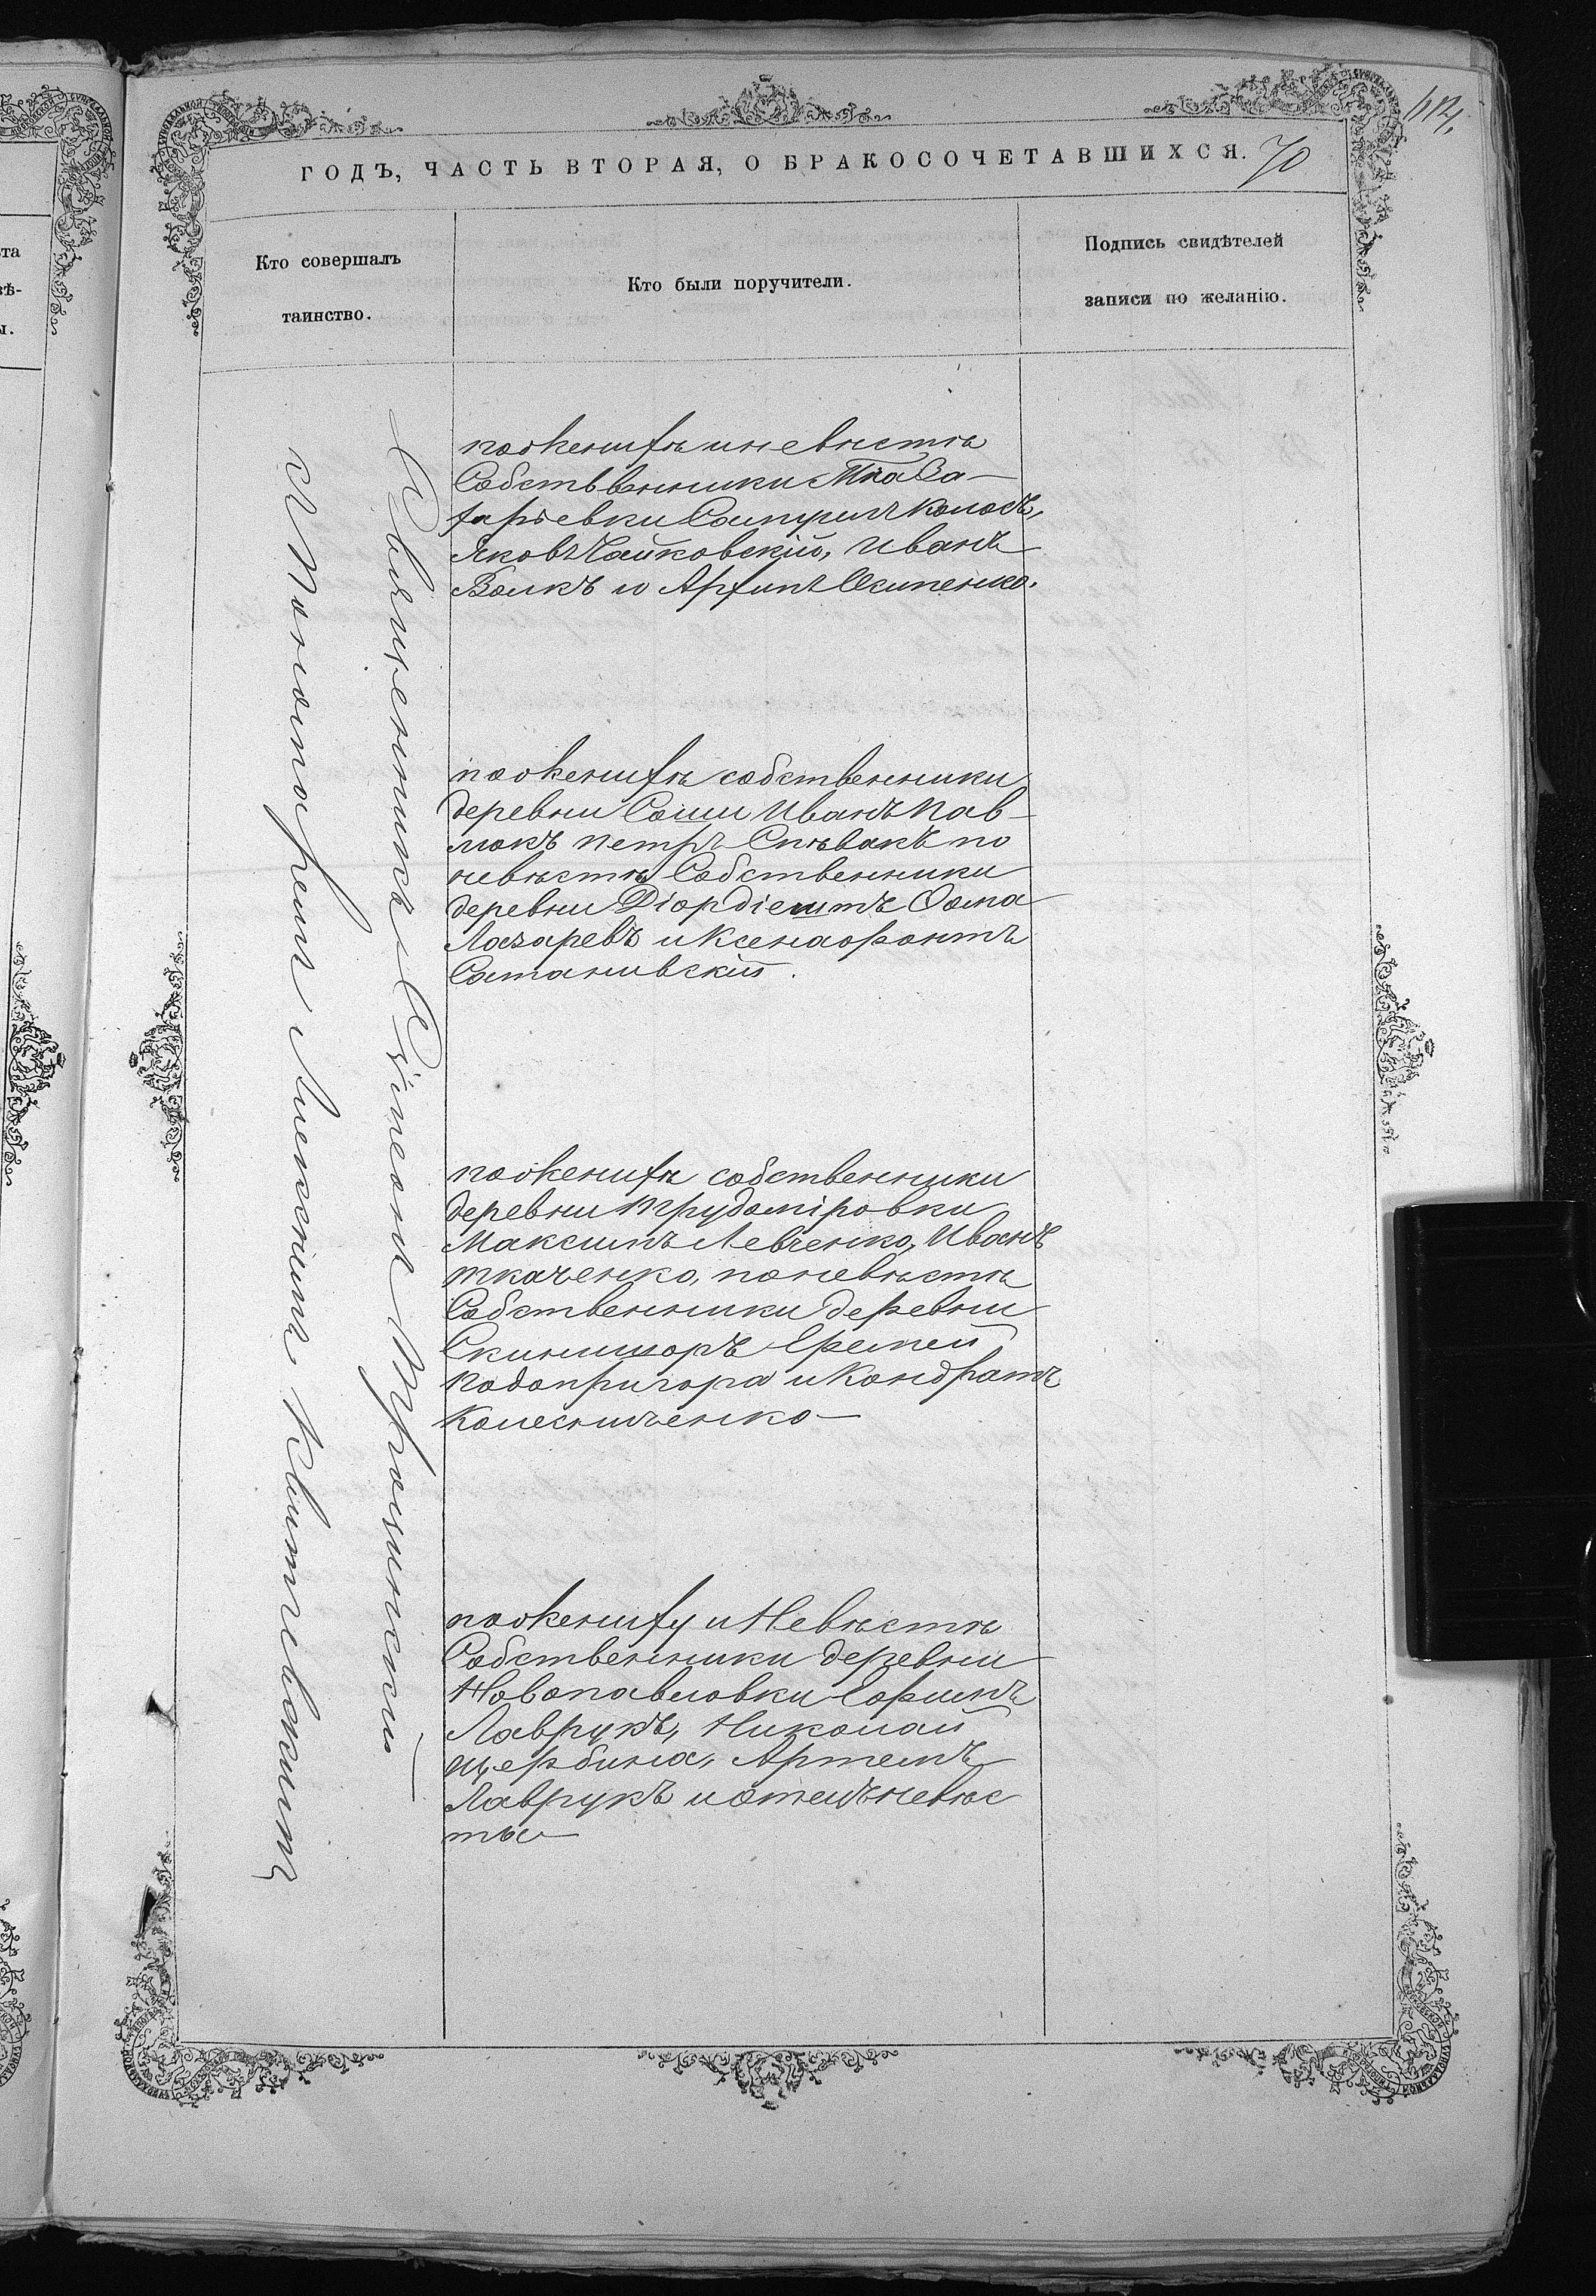 112.
ГОДЪ, ЧАСТЬ ВТОРАЯ, О БРАКОСОЧЕТАВШИХСЯ. 70
Кто совершалъ
таинство.
Кто были поручители.
Подпись свидѣтелей
записи по желанію.
Священникъ Сѵмеонъ
Псаломщикъ
по женихѣ и невѣстѣ
Собственники М. За-
харьевки Каносъ,
Яковъ Чайковскій, Иванъ
Волкъ и Архипъ Осипенко.
по женихѣ собственники
деревни Соши Иванъ Пав-
люкъ Петръ Спѣвакъ по
невѣстѣ Собственники
деревни Діордіештъ Ѳома
Лазаревъ и Ксенофонтъ
Сатановскій.
по женихѣ собственники
деревни Трудоміровки
Максимъ Левченко, Иванъ
Ткаченко, по невѣстѣ
Собственники деревни
Скиншоръ Еремей
Подопригора и Кондратъ
Колесниченко
по жениху и Невѣстѣ
Собственники деревни
Новопавловки Ефимъ
Лаврукъ, Николай
Щербина, Артемъ
Лаврукъ и отецъ невѣс
ты